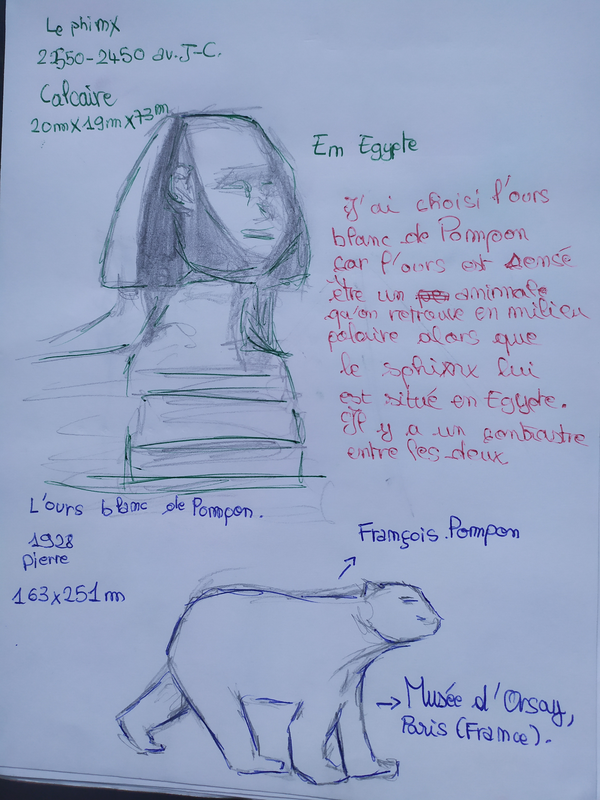 Le phinx
2550-2450 av.J-C.
Calcaire
20m x 19m x 73m
En Egypte
J'ai choisi l'ours
blanc de Pompon
car l'ours est sensé
être un animale
qu'on retrouve en milieu
polaire alors que
le sphinx lui
est situé en Egypte.
Il y a un contrastre
entre les deux
L'ours blanc de Pompon.
1928
Pierre
163x251m
François.Pompon
Musée d'Orsay,
Paris (France).